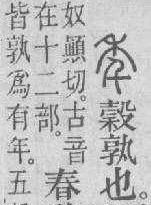 秊穀孰也。
奴顚切。古音
在十二部。
春
皆孰爲有年。五